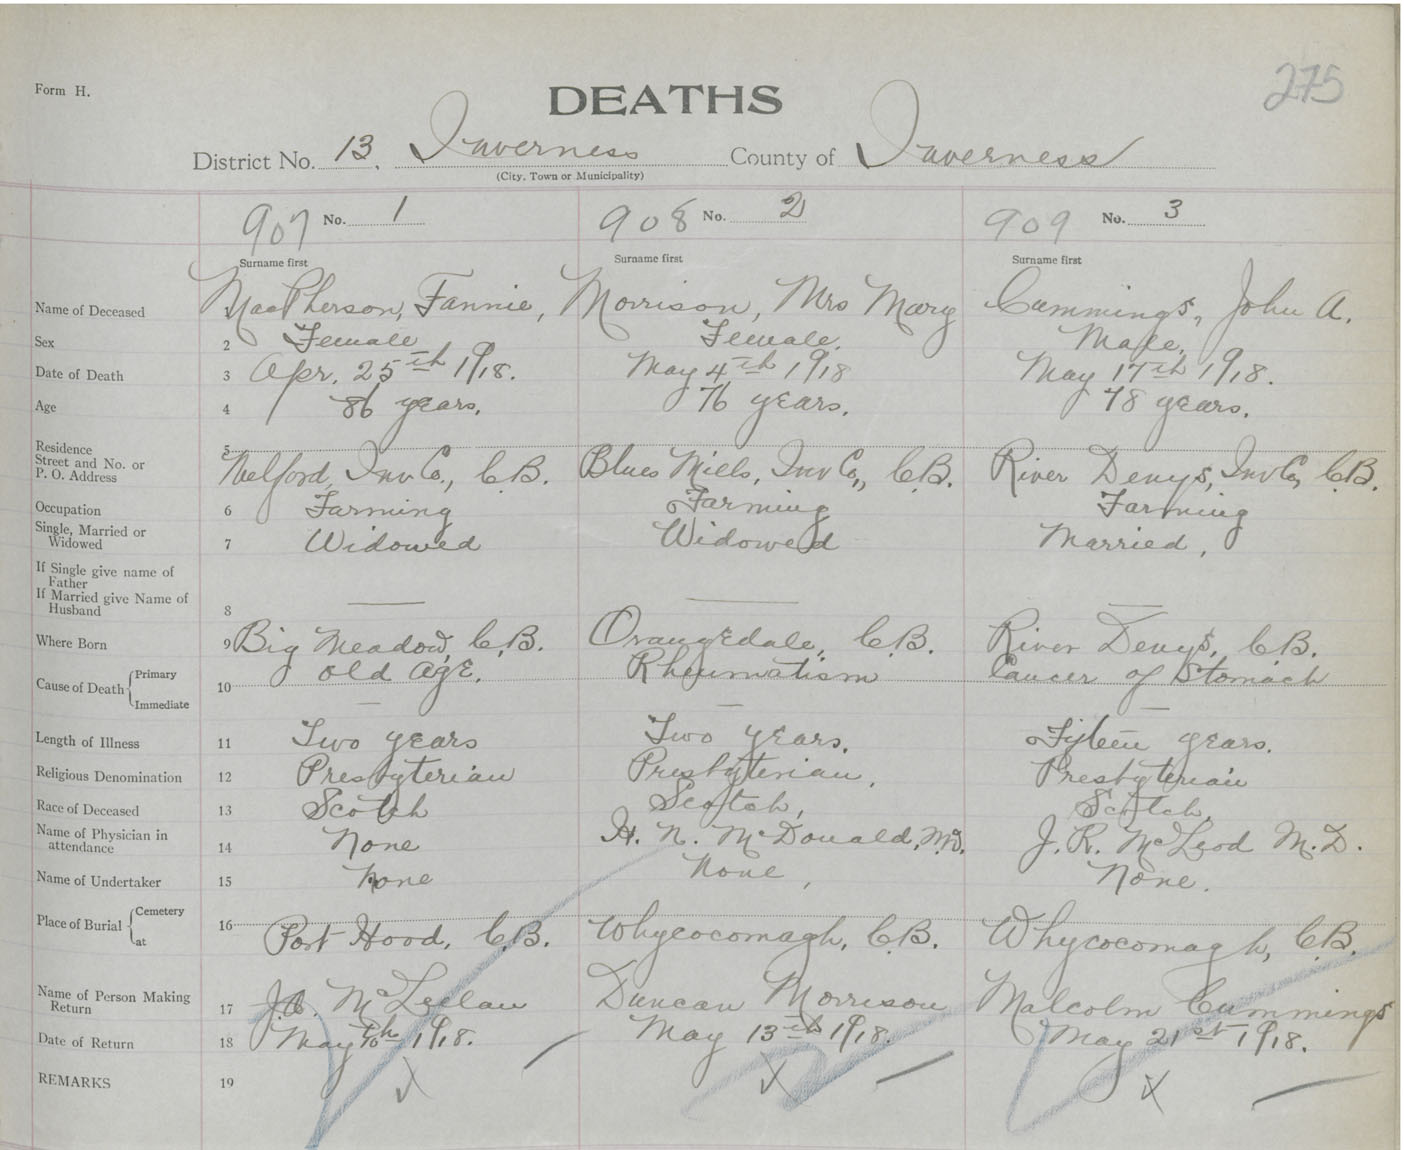 275
Form H.
DEATHS
District No. 13. Inverness County of Inverness
(City, Town or Municipality)
907 No. 1 908 No. 2 909 No. 3
Surname first Surname first Surname first
Name of Deceased 1 MacPherson, Fannie, Morrison, Mrs Mary Cummings, John A.
Sex 2 Female Female. Male,
Date of Death 3 Apr. 25th 1918. May 4th 1918 May 17th 1918.
Age 4 86 years. 76 years. 78 years.
Residence
Street and No. or
P. O. Address
5 Melford, Inv Co., C.B. Blues Mills, Inv Co., C.B. River Denys, Inv Co, C.B.
Occupation 6 Farming Farming Farming
Single, Married or
Widowed 7 Widowed Widowed Married,
If Single give name of
Father
If Married give Name of
Husband 8 — — —
Where Born 9 Big Meadow, C.B. Orangedale, C.B. River Denys, C.B.
Cause of Death Primary
Immediate
10 Old Age. Rheumatism Cancer of Stomach
— — —
Length of Illness 11 Two years Two years. Fifteen years.
Religious Denomination 12 Presbyterian Presbyterian, Presbyterian
Race of Deceased 13 Scotch Scotch, Scotch,
Name of Physician in
attendance 14 None H. N. McDonald, M.D. J. R. McLeod M.D.
Name of Undertaker 15 None None, None.
Place of Burial Cemetery
at
16 Port Hood, C.B. Whycocomagh, C.B. Whycocomagh, C.B.
Name of Person Making
Return 17 McLellan Duncan Morrison Malcolm Cummings
Date of Return 18 May 1918. May 13th 1918. May 21st 1918.
REMARKS 19 x x x